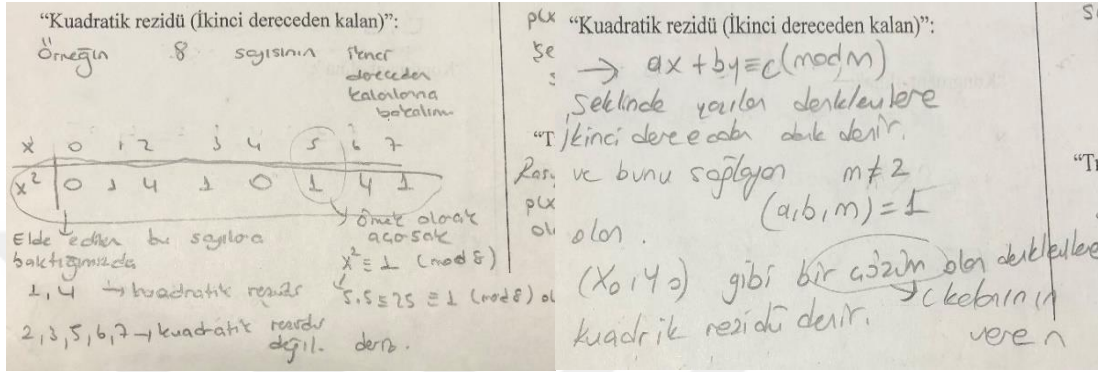 “Kuadratik rezidü (İkinci dereceden kalan)”:
Örneğin 8 sayısının ikinci
dereceden
kalanlarına
bakalım
x 0 1 2 3 4 5 6 7
x² 0 1 4 1 0 1 4 1
Elde edilen bu sayılara
baktığımızda
1, 4 → kuadratik rezidü
2, 3, 5, 6, 7 → kuadratik rezidü
değil. deriz.
örnek olarak
açarsak
x² ≡ 1 (mod 8)
5.5 ≡ 25 ≡ 1 (mod 8) ol
p(x
şe
s
“T
Ras
p(x
ol
“Kuadratik rezidü (İkinci dereceden kalan)”:
→ ax + by ≡ c (mod m)
şeklinde yazılan denklemlere
ikinci dereceden denk denir.
ve bunu sağlayan m ≠ 2
(a, b, m) = 1
olan.
(x₀, y₀) gibi bir çözüm olan denklemlere
kuadrik rezidü denir.
c kalanının
veren
s
“Tr